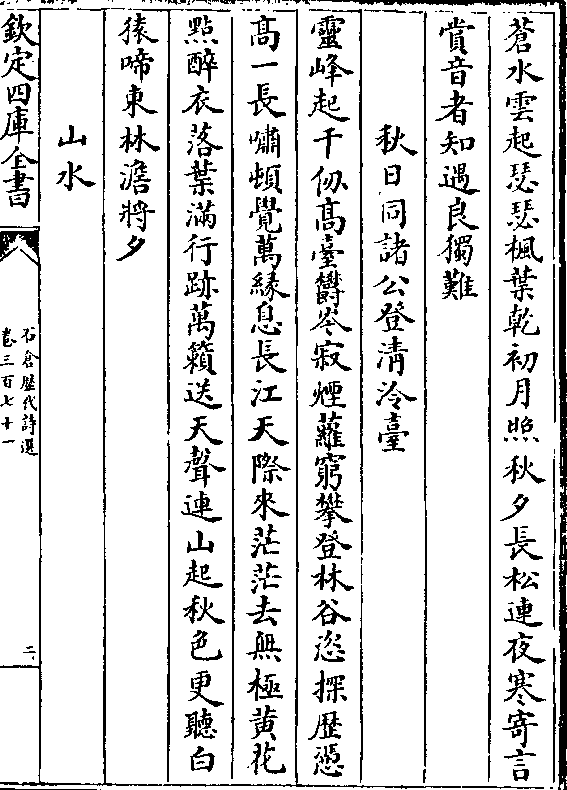 蒼水雲起瑟瑟楓葉乾初月照秋夕長松連夜寒寄言
賞音者知遇良獨難
秋日同諸公登清泠臺
靈峰起千仞高臺鬱岑寂煙蘿窮攀登林谷恣探歴憑
高一長嘯頓覺萬縁息長江天際來茫茫去無極黄花
點醉衣落葉滿行跡萬籟送天聲連山起秋色更聽白
猿啼東林澹將夕
山水
欽定四庫全書
石倉歴代詩選
卷三百七十一
二